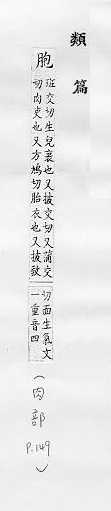 類篇
胞
班交切生兒裹也又披交切又蒲交
切肉吏也又方鳩切胎衣也又披敎
切面生氣文
一重音四
（肉部 P.149）